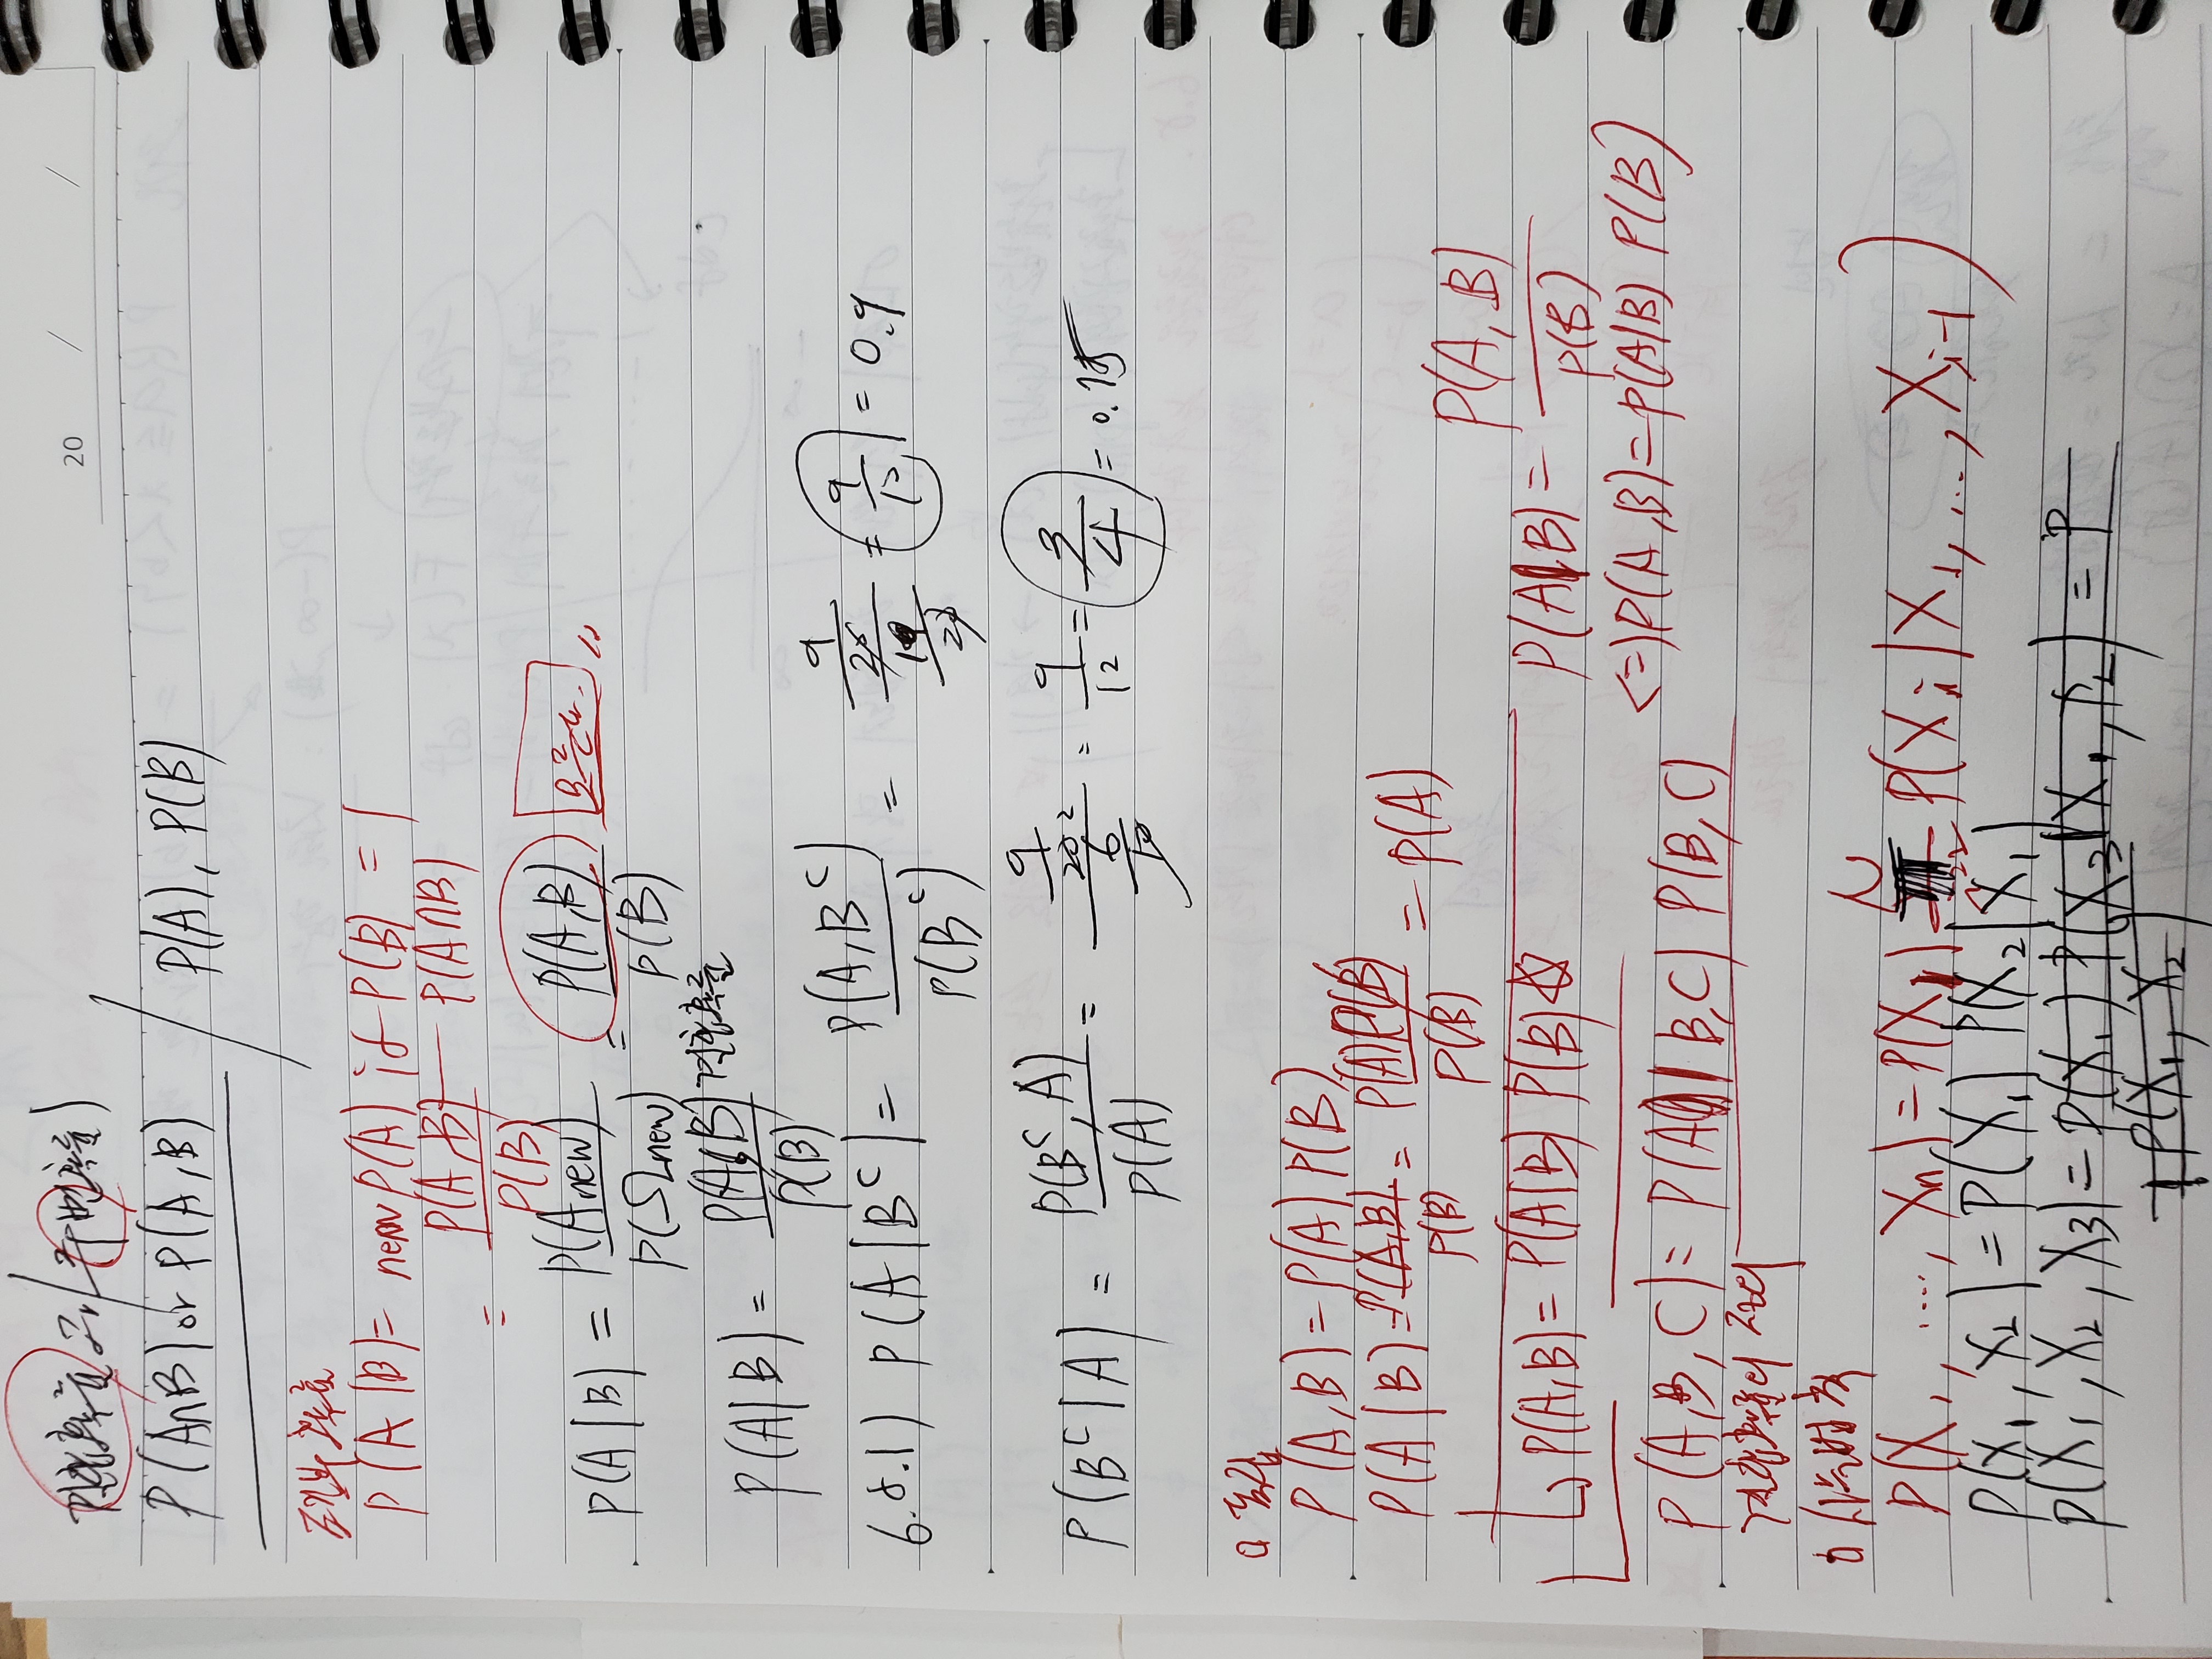 20 / /
결합확률과 / 주변확률)
P(A∩B) or P(A,B) / P(A), P(B)
조건부 확률
P(A|B) = new P(A) if P(B) = 1
= P(A,B) / P(B) — P(A∩B)
P(A|B) = P(Anew) / P(Ωnew) = P(A,B) / P(B)
P(A|B) = P(A,B) / P(B) 결합확률
6.8.1) P(A|Bᶜ) = P(A,Bᶜ) / P(Bᶜ) = 9/20 / 10/20 = 9/10 = 0.9
P(Bᶜ|A) = P(Bᶜ,A) / P(A) = 9/20 / 6/10 = 9/12 = 3/4 = 0.75
독립
P(A,B) = P(A) P(B)
P(A|B) = P(A,B) / P(B) = P(A)P(B) / P(B) = P(A)
↳ P(A,B) = P(A|B) P(B) ☆
P(A|B) = P(A,B) / P(B)
<=> P(A,B) = P(A|B) P(B)
P(A,B,C) = P(A|B,C) P(B,C)
결합확률의
사슬법칙
P(X₁, ...., Xn) = P(X₁) Π P(Xi|X₁, ..., Xi-1)
P(X₁, X₂) = P(X₁) P(X₂|X₁)
P(X₁, X₂, X3) = P(X₁) P(X3|X₁, P₂) = P
P(X₁, X₂)